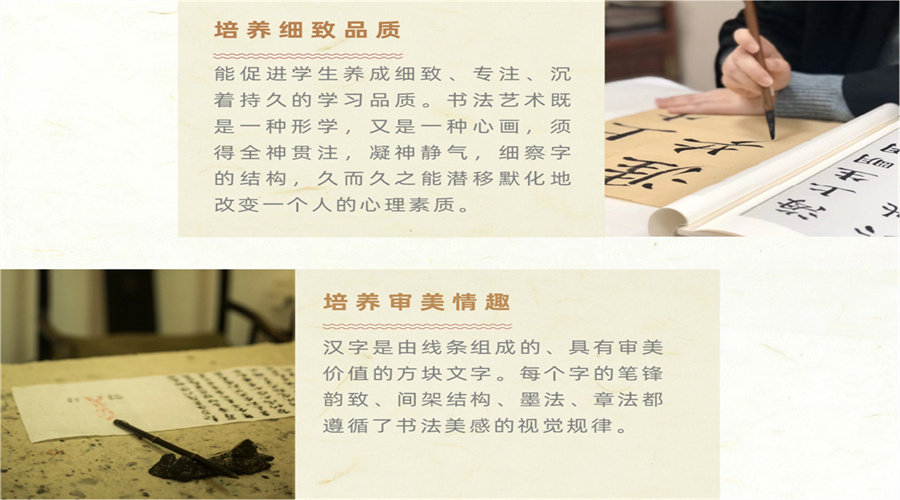 培养细致品质
能促进学生养成细致、专注、沉
着持久的学习品质。书法艺术既
是一种形学，又是一种心画，须
得全神贯注，凝神静气，细察字
的结构，久而久之能潜移默化地
改变一个人的心理素质。
海上生明
培养审美情趣
汉字是由线条组成的、具有审美
价值的方块文字。每个字的笔锋
韵致、间架结构、墨法、章法都
遵循了书法美感的视觉规律。